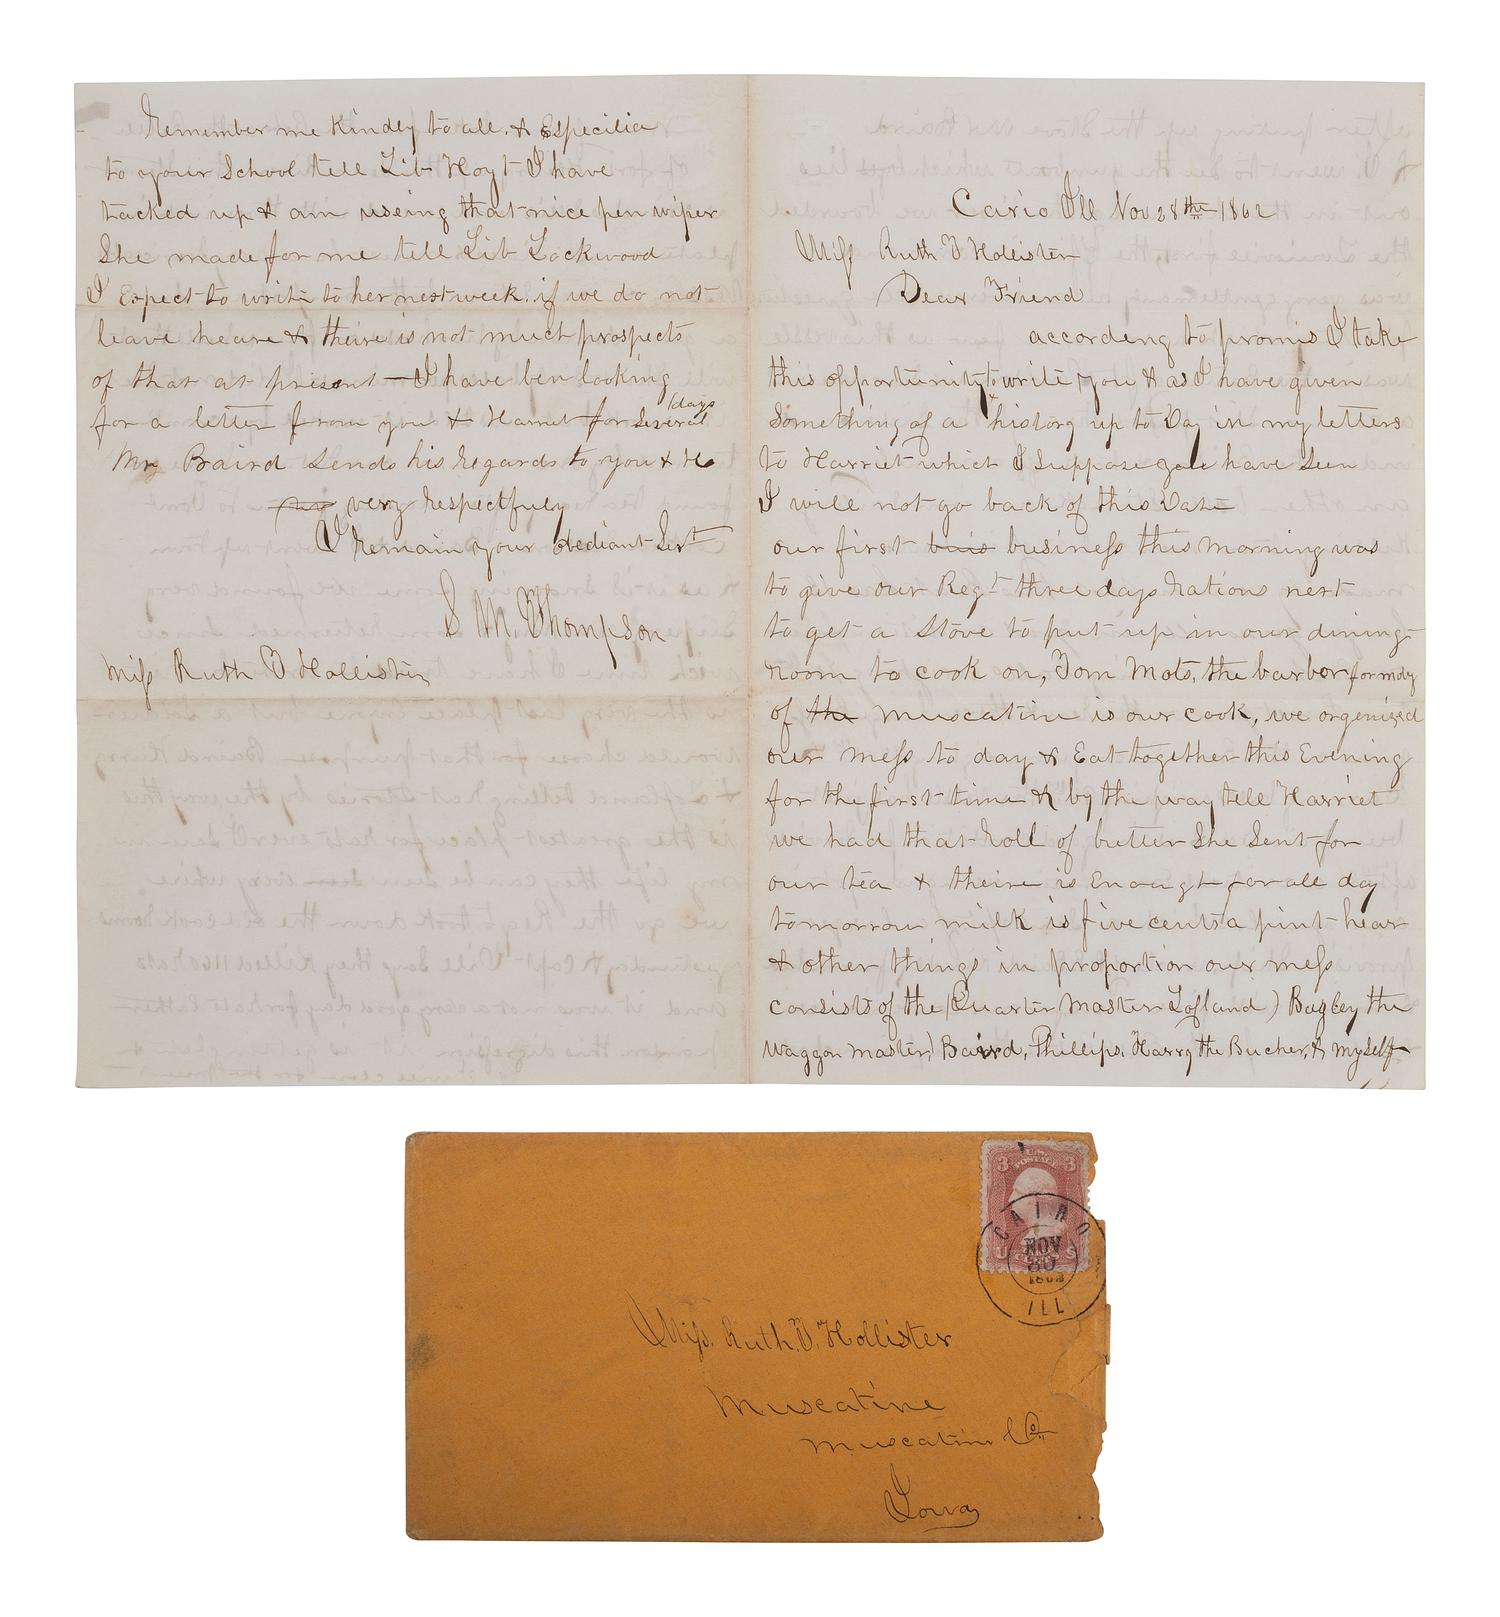 Cario Ill Nov 28th 1862
Miss Ruth D Hollister
Dear Friend
according to promis I take
this opportunity to write you & as I have given
Something of a history up to Day in my letters
to Harriet which I Suppose you have Seen
I will not go back of this Date
our first buis business this morning was
to give our Regt three days Rations next
to get a Stove to put up in our dining
room to cook on, Tom Mots, the barbor formaly
of the Muscatine is our cook, we orgenized
our mess to day & Eat together this Evening
for the first time & by the way tell Harriet
we had that Roll of butter She Sent for
our tea & theire is Enough for all day
tomorrow milk is five cents a pint hear
& other things in proportion our mess
consists of the (Quarter Master Lofland) Bagley the
Waggon Master) Baird, Phillips, Harry the Bucher, & myself
Remember me Kindly to all. & Especilia
to your School tell Lib Hoyt I have
tacked up & am useing that nice pen wiper
She made for me tell Lib Lockwood
I Expect to write to her next week. if we do not
leave heare & theire is not much prospects
of that at present — I have ben looking
for a letter from you & Harriet for Several days
Mr Baird Sends his Regards to you & H
very Respectfuly
I Remain your obediant Servt
S M. Thompson
Miss Ruth D Hollister
3 3
U.S.
POSTAGE
U S
CAIRO
NOV
30
ILL
Miss. Ruth. D. Hollister
Muscatine
Muscatine Co.
Iowa